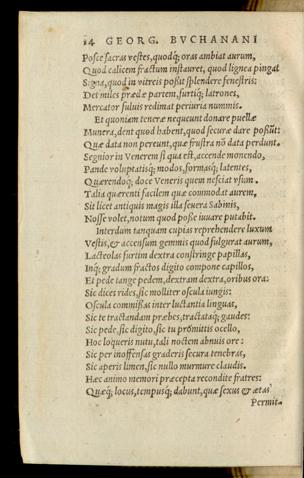 14 GEORG. BVCHANANI
Posce sacras vestes, quodq; oras ambiat aurum,
Quod calicem fractum instauret, quod lignea pingat
Signa, quod in vitreis poßit splendere fenestris:
Det miles prædæ partem, furtiq; latrones,
Mercator fuluis redimat periuria nummis.
Et quoniam teneræ nequeunt donare puellæ
Munera, dent quod habent, quod securæ dare poßūt:
Quæ data non pereunt, quæ frustra nō data perdunt.
Segnior in Venerem si qua est, accende monendo,
Pande voluptatisq; modos, formasq; latentes,
Quærendoq; doce Veneris quem nesciat vsum.
Talia quærenti facilem quæ commodat aurem,
Sit licet antiquis magis illa seuera Sabinis,
Nosse volet, notum quod poße iuuare putabit.
Interdum tanquam cupias reprehendere luxum
Vestis, & accensum gemmis quod fulgurat aurum,
Lacteolas furtim dextra constringe papillas,
Inq; gradum fractos digito compone capillos,
Et pede tange pedem, dextram dextra, oribus ora:
Sic dices rides, sic molliter oscula iungis:
Oscula commissas inter luctantia linguas,
Sic te tractandam præbes, tractataq; gaudes:
Sic pede, sic digito, sic tu prōmittis ocello,
Hoc loqueris nutu, tali noctem abnuis ore:
Sic per inoffensas graderis secura tenebras,
Sic aperis limen, sic nullo murmure claudis.
Hæc animo memori præcepta recondite fratres:
Quæq; locus, tempusq; dabunt, quæ sexus & ætas
Permit-